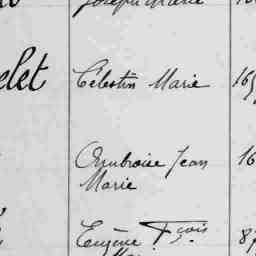 Joseph Marie
elet Célestin Marie 169
Ambroise Jean 16
Marie
Eugène Fçois 87